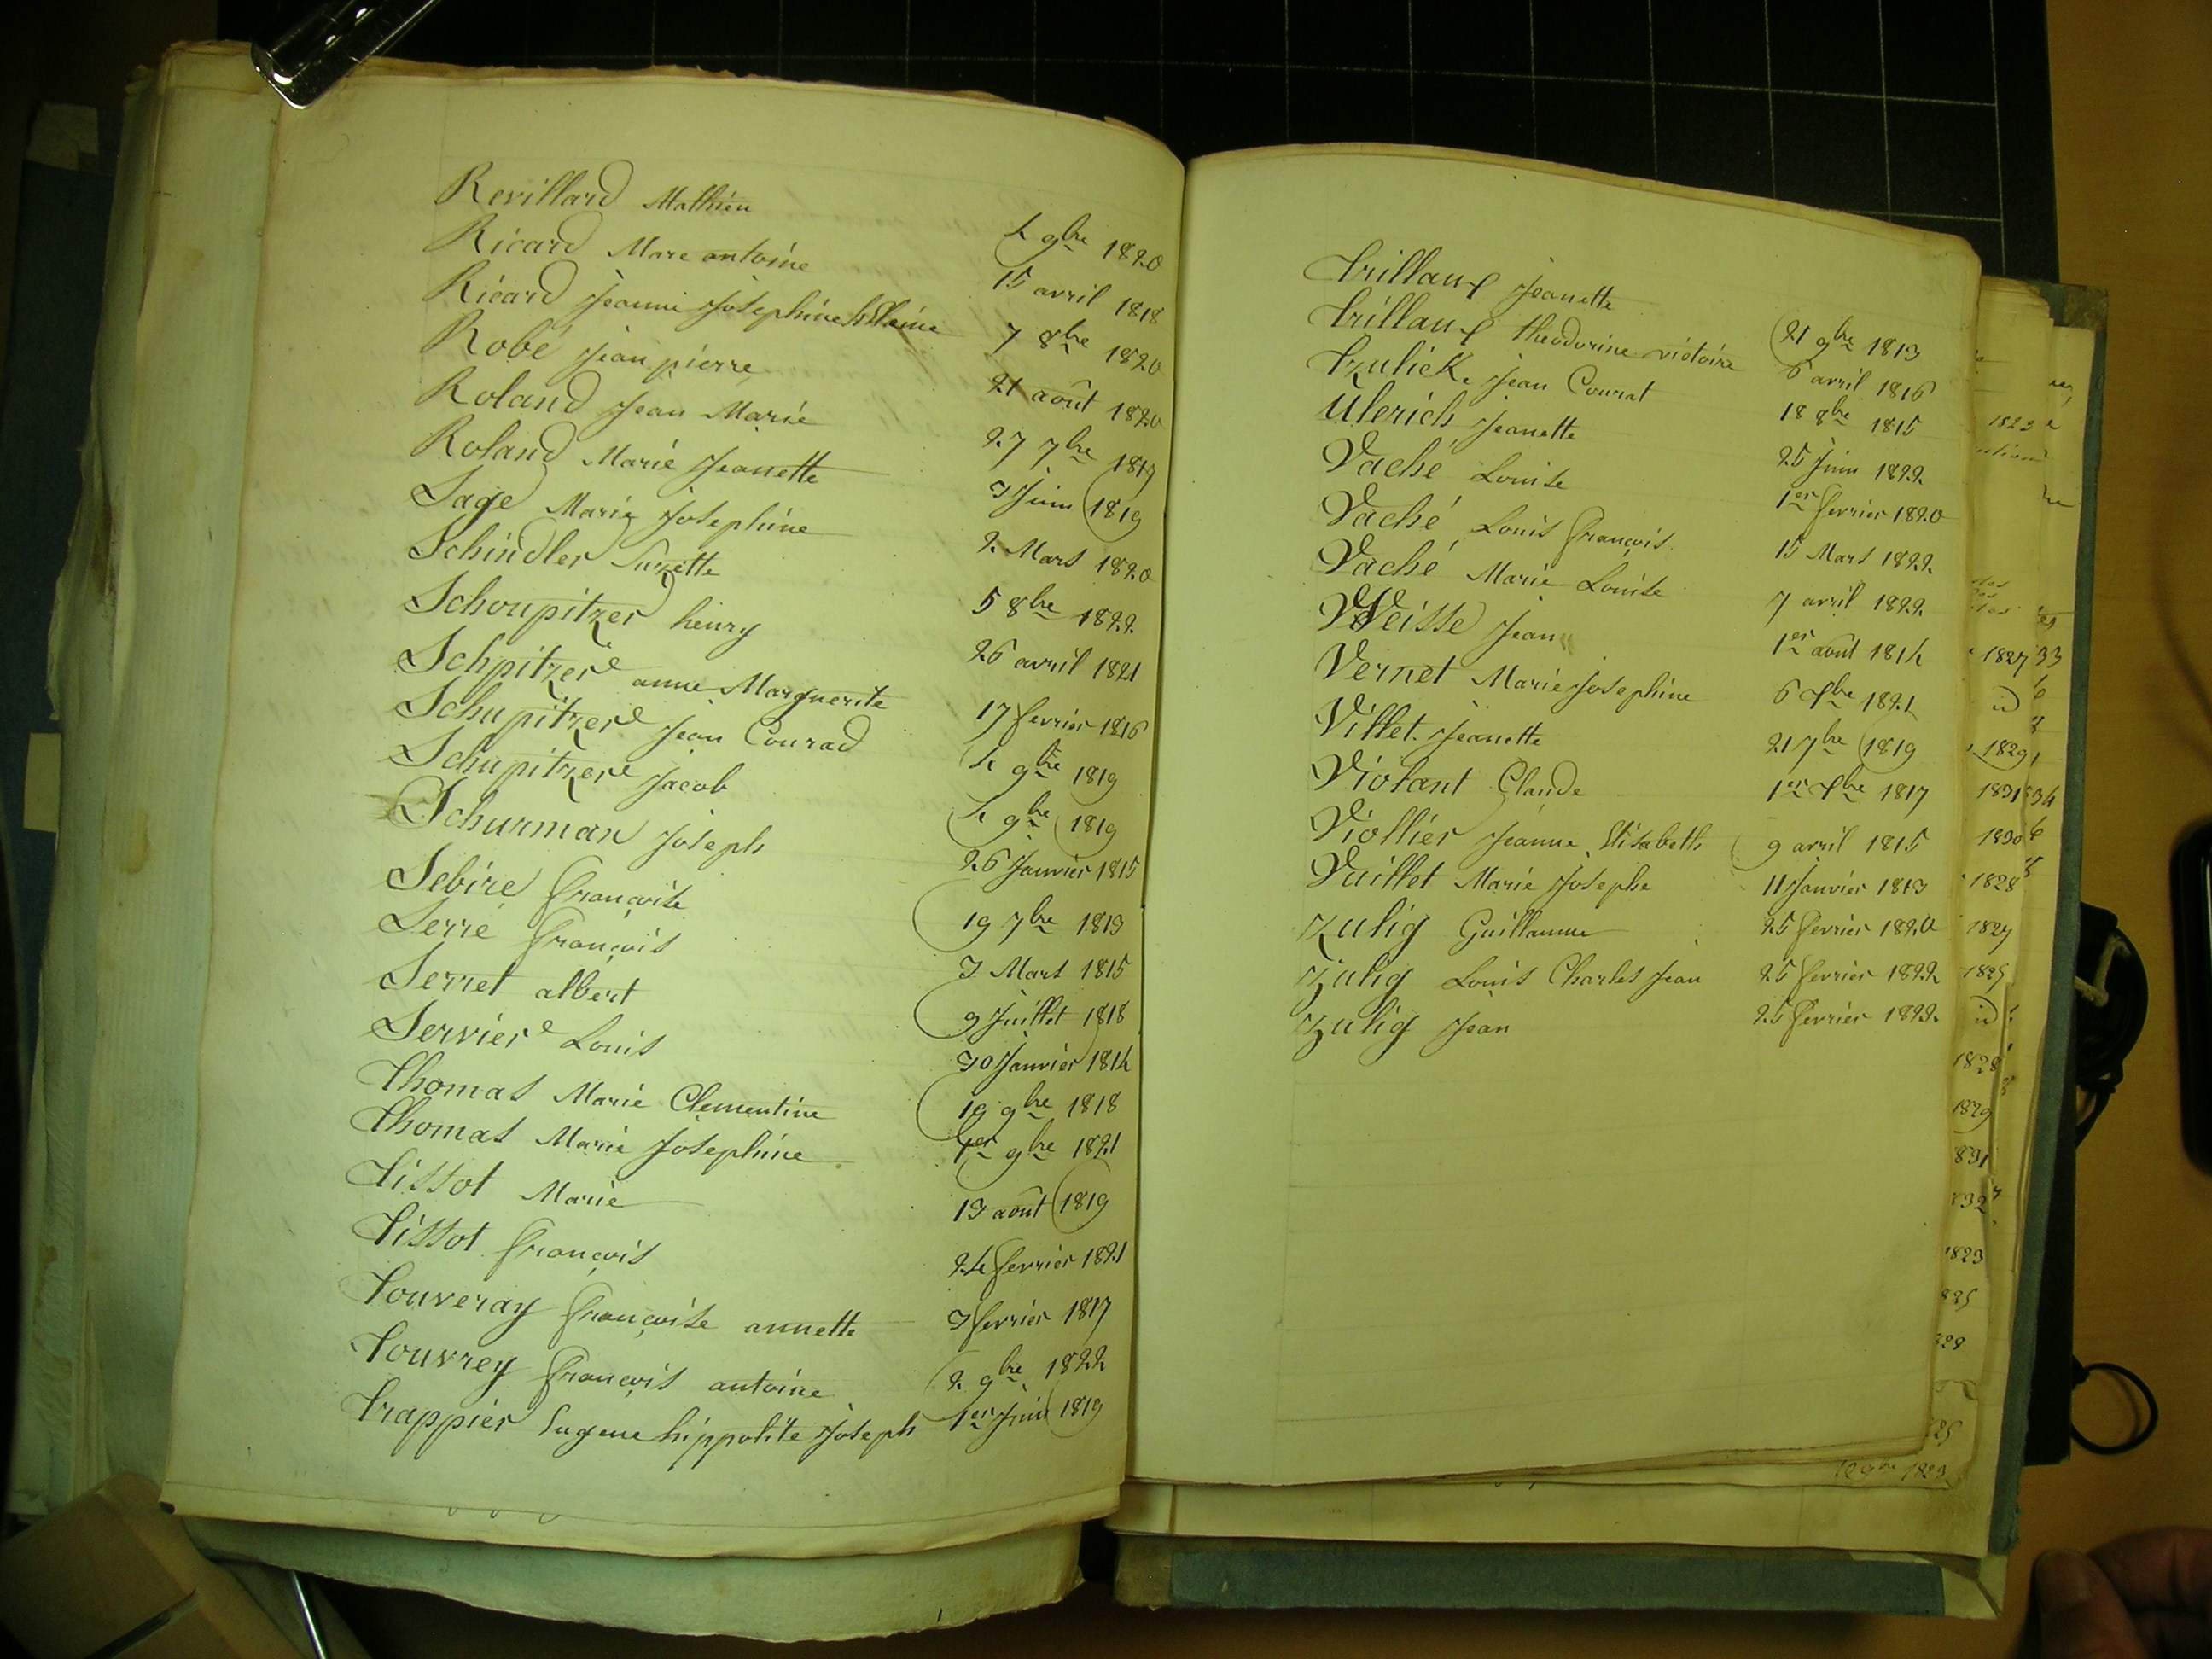 Revillard Mathieu 4 9bre 1820
Ricard Marc antoine 15 avril 1818
Ricard Jeanne Josephine 7 8bre 1820
Robé Jean pierre 21 août 1820
Roland Jean Marie 27 7bre 1819
Roland Marie Jeanette 3 Juin 1819
Sage Marie Josephine 2 Mars 1820
Schindler Suzette 5 8bre 1822
Schoupitzer henry 26 avril 1821
Schpitzere anne Marguerite 17 fevrier 1816
Schupitzere Jean Conrad 4 9bre 1819
Schupitzere Jacob 4 9bre 1819
Schurman Joseph 26 Janvier 1815
Sebire françoise 19 7bre 1813
Serre françois 3 Mars 1815
Serret albert 9 Juillet 1818
Serviere Louis 30 Janvier 1814
Thomas Marie Clementine 19 9bre 1818
Thomas Marie Josephine 1er 9bre 1821
Tissot Marie 13 août 1819
Tissot françois 24 fevrier 1821
Touveray françoise annette 3 fevrier 1817
Touvrey françois antoine 2 9bre 1822
Trappier Eugene hippolite Joseph 1er Juin 1819
Trillaux Jeanette 21 9bre 1813
Trillaux theodorine victoire 6 avril 1816
Tzulick Jean Conrat 18 8bre 1815
Ulerich Jeanette 25 Juin 1822
Vaché Louise 1er fevrier 1820
Vaché Louis françois 15 Mars 1822
Vaché Marie Louise 7 avril 1822
Weisse Jean 1er août 1814
Vernet Marie Josephine 6 Xbre 1821
Villet Jeanette 21 7bre 1819
Violant Claude 1er Xbre 1817
Viollier Jeanne Elisabeth 9 avril 1815
Vuillet Marie Josephe 11 Janvier 1813
Zulig Guillaume 25 fevrier 1820
Zulig Louis Charles Jean 25 fevrier 1822
Zulig Jean 25 fevrier 1822
1823
1827
1829
1831
1830
1828
1827
1825
1828
1829